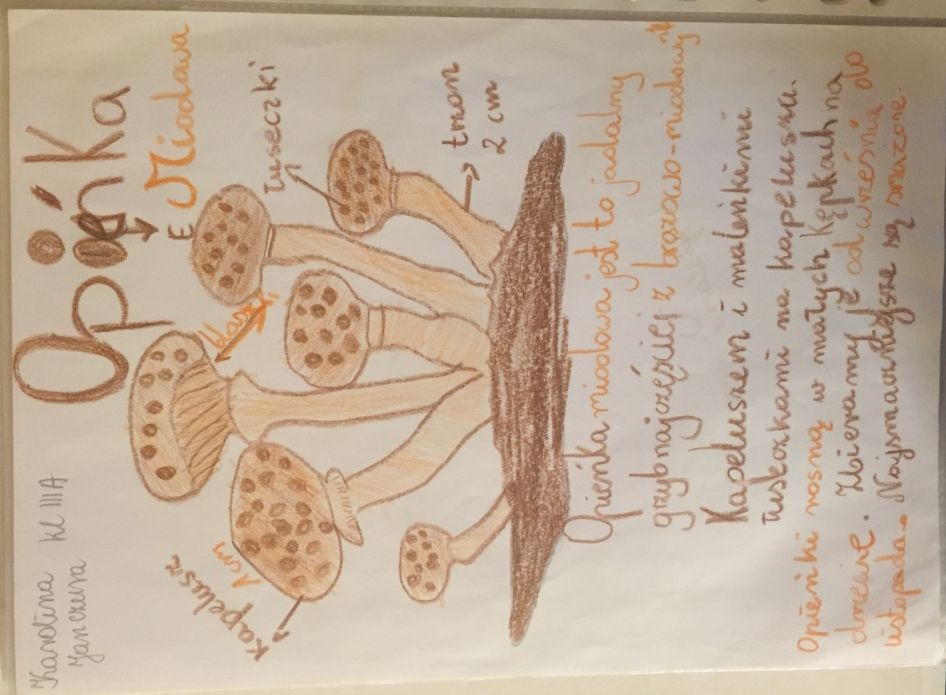 Karolina kl IIIA
Janczura
Opieńka
E
Miodowa
łuseczki
trzon
2 cm
Kapelusz
1 cm
Opieńka miodowa jest to jadalny
grzyb najczęściej z brązowo-miodowym
Kapeluszem i maleńkimi
łuseczkami na kapeluszu.
Opieńki rosną w małych kępkach na
drzewie. Zbieramy je od września do
listopada. Najsmaczniejsze są smażone.